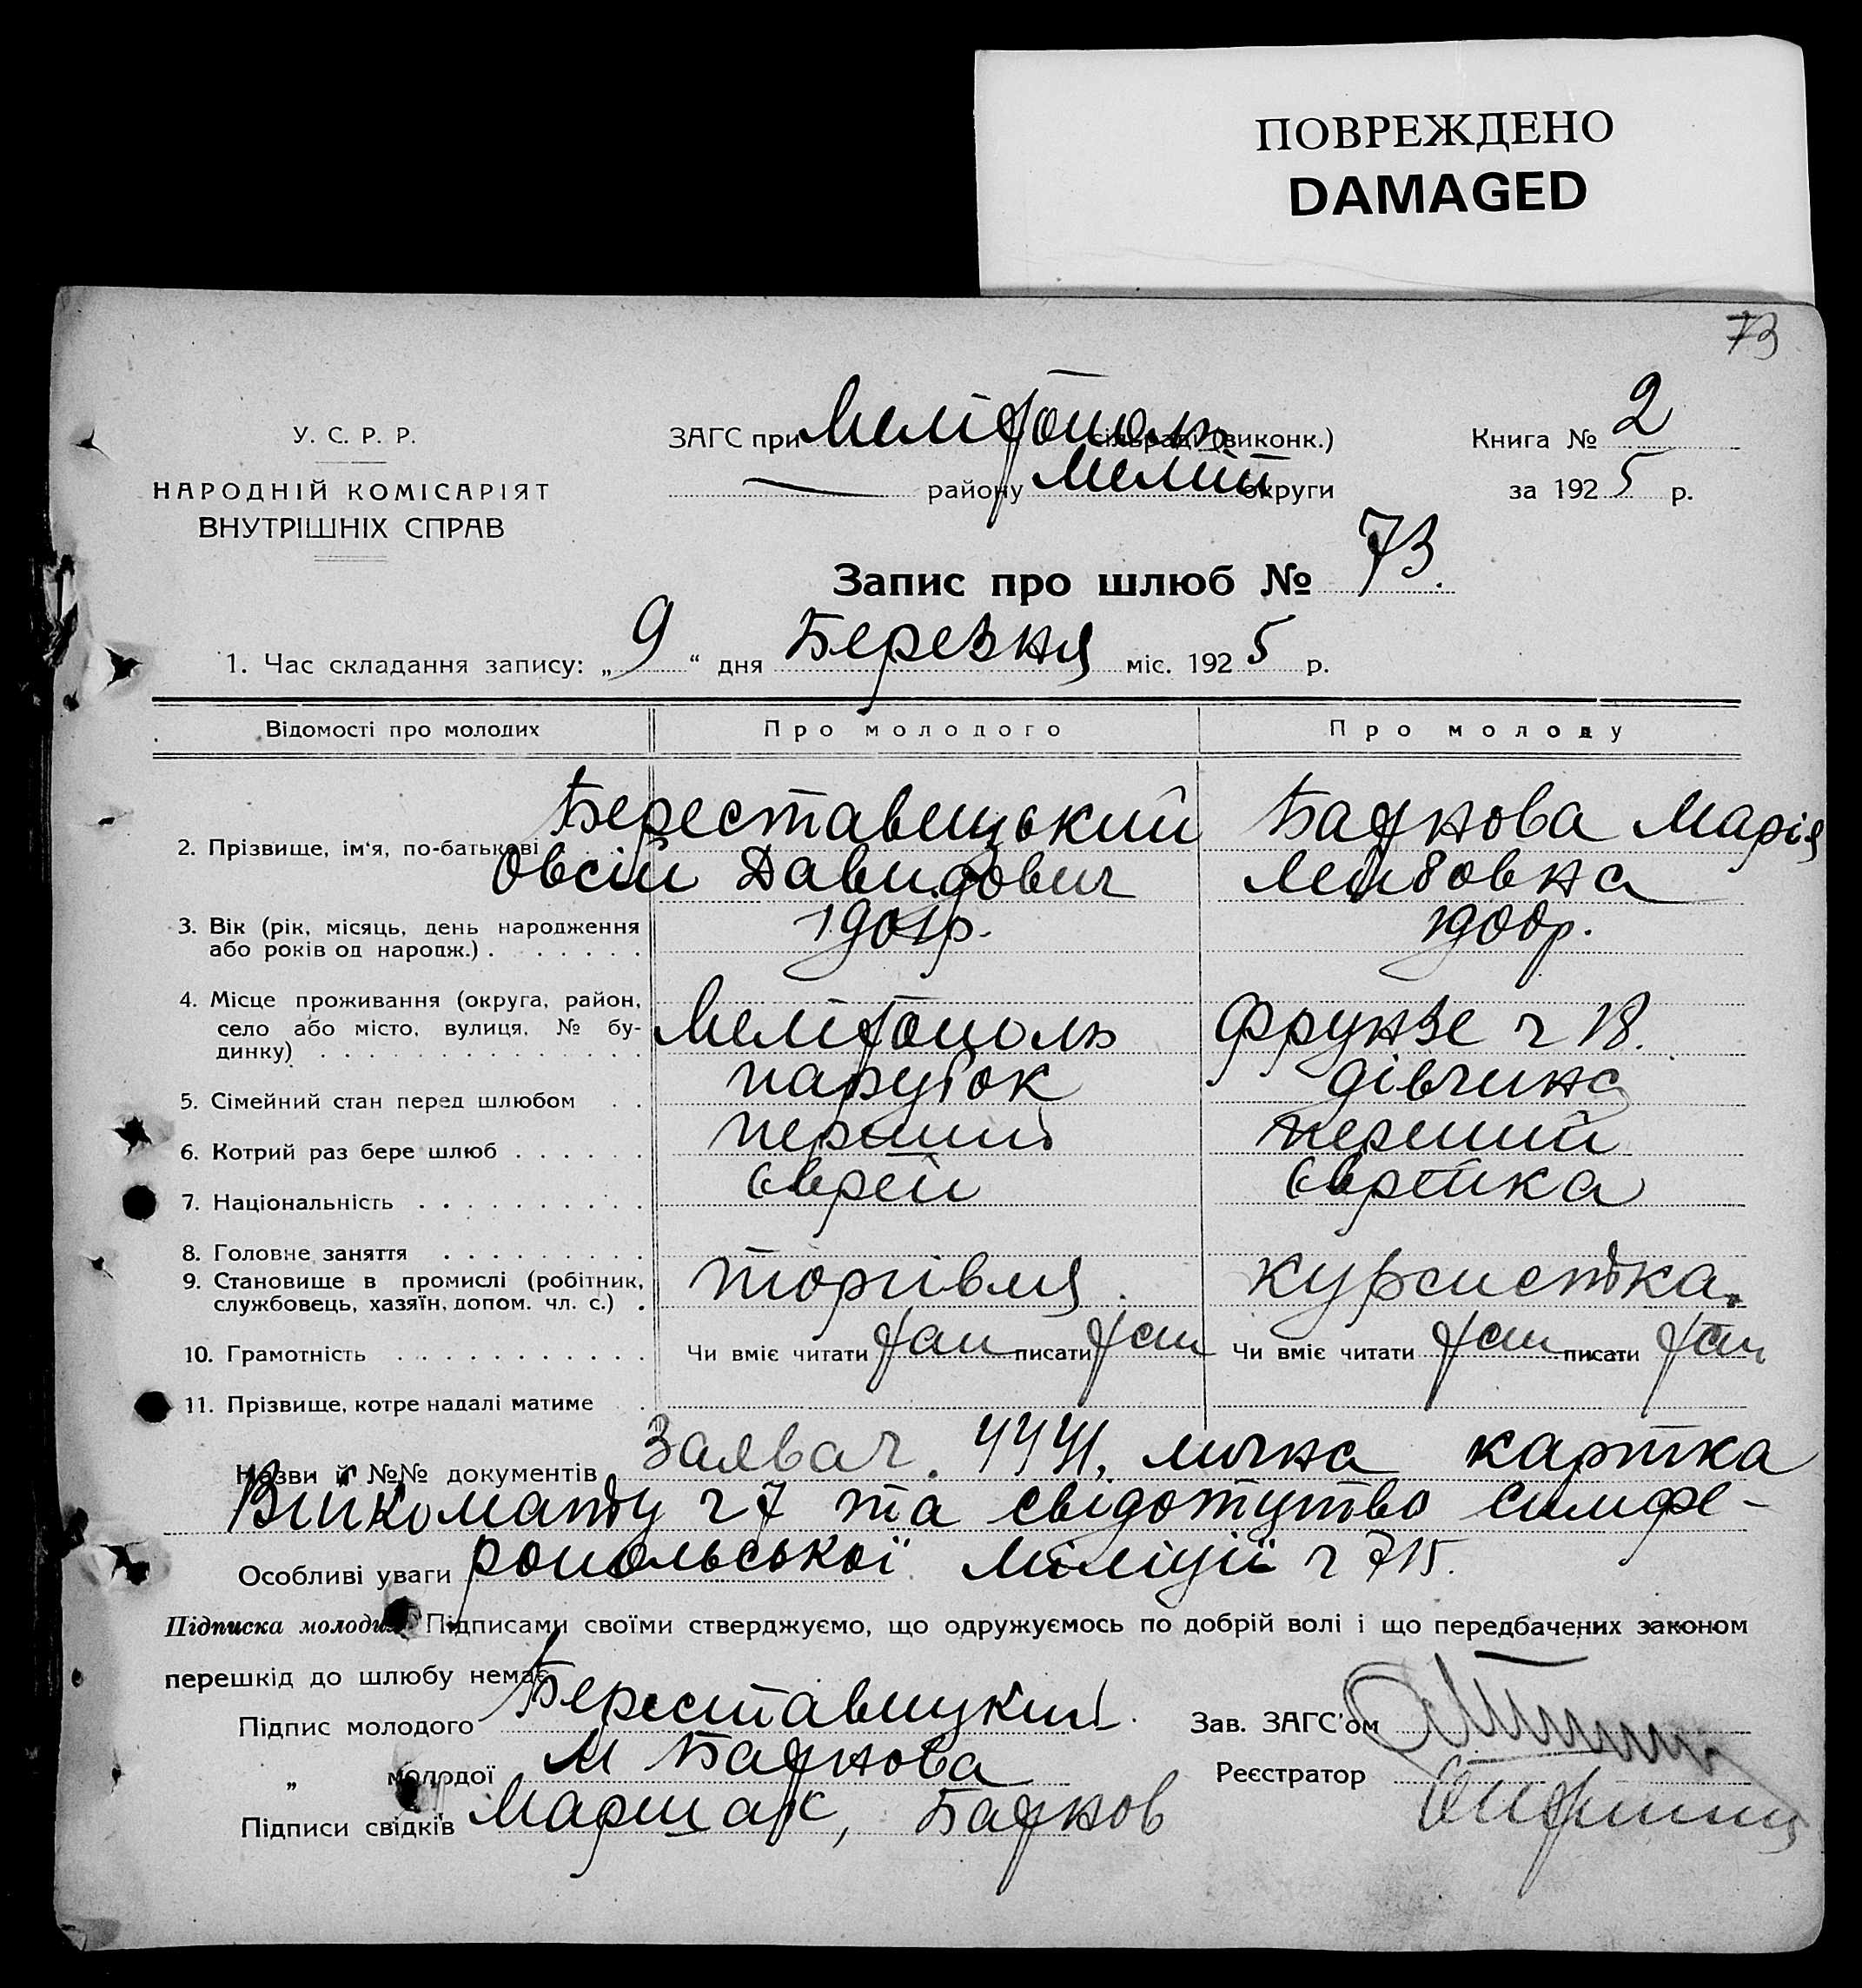 ПОВРЕЖДЕНО
DAMAGED
73
У. С. Р. Р.
НАРОДНІЙ КОМІСАРІЯТ
ВНУТРІШНІХ СПРАВ
ЗАГС при Мелітополь сільраді (виконк.)
— району Меліт округи
Книга № 2
за 1925 р.
Запис про шлюб № 73.
1. Час складання запису: „9“ дня Березня міс. 1925 р.
Відомості про молодих Про молодого Про молоду
2. Прізвище, ім'я, по-батькові
Береставицький Овсій Давидович
Марія Лейбовна
3. Вік (рік, місяць, день народження
або років од народж.)
1901р. 1900р.
4. Місце проживання (округа, район,
село або місто, вулиця, № бу-
динку)
Мелітополь Фрунзе ч 18.
5. Сімейний стан перед шлюбом парубок дівчина
6. Котрий раз бере шлюб перший перший
7. Національність єврей єврейка
8. Головне заняття
9. Становище в промислі (робітник,
службовець, хазяїн, допом. чл. с.)
торгівля. курсистка.
10. Грамотність Чи вміє читати так писати так Чи вміє читати так писати так
11. Прізвище, котре надалі матиме
Назви й №№ документів Заява ч. лична картка
Військомату ч 7 та свідотцтво симфе-
Особливі уваги ропольської Міліції ч 715.
Підписка молодих: Підписами своїми стверджуємо, що одружуємось по добрій волі і що передбачених законом
перешкід до шлюбу немає
Підпис молодого Береставицкий.
Зав. ЗАГС'ом
„ молодої М
Реєстратор
Підписи свідків Маршак,